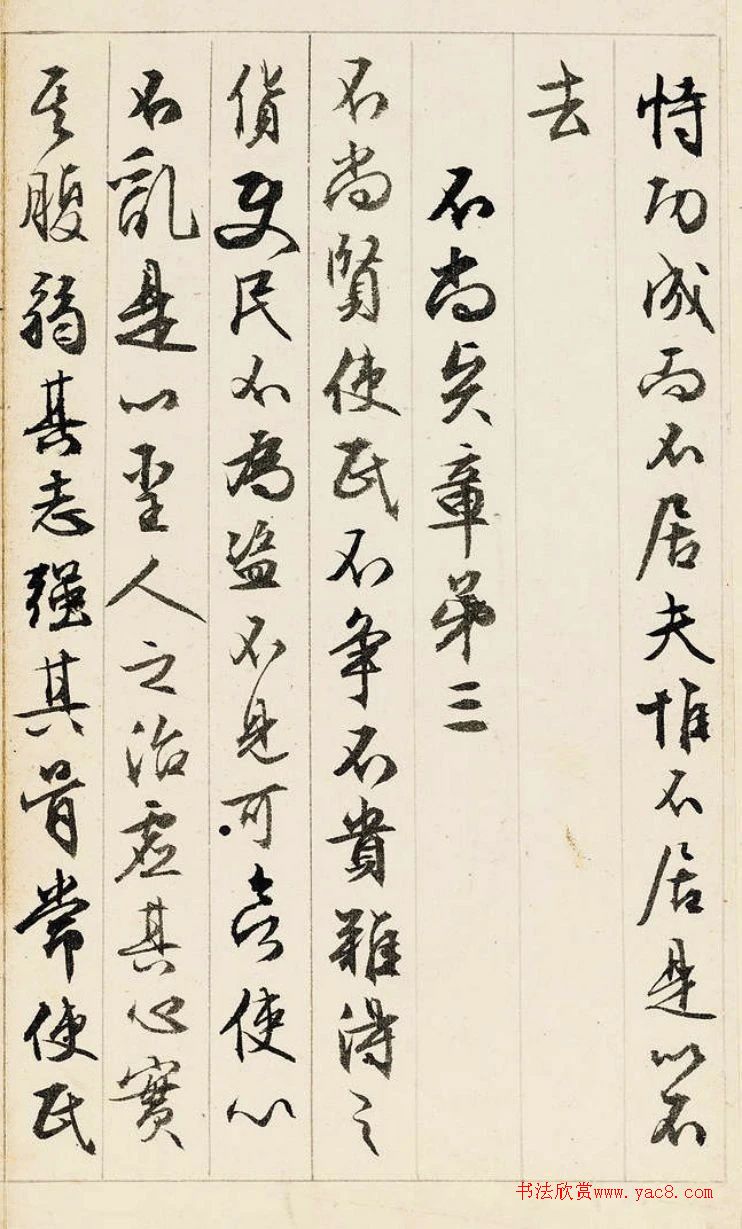 恃功成而不居夫惟不居是以不
去
不尚賢章第三
不尚賢使民不争不貴難得之
貨使民不為盗不見可欲使心
不亂是以聖人之治虚其心實
其腹弱其志强其骨常使民
书法欣赏www.yac8.com